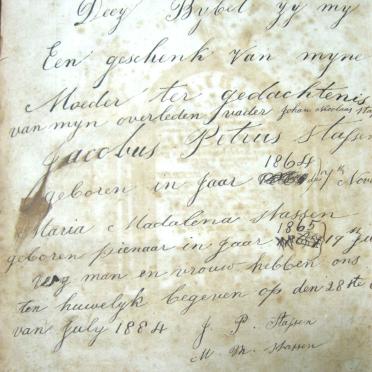 Deez Bybel zy my
Een geschenk van myne
Moeder ter gedachtenis
van myn overleden vader Johan
Jacobus Petrus Stassen
1864
geboren in jaar den 7th Nov
Maria Madalena Stassen
1865
geboren pienaar in jaar 19
man en vrouw hebben ons
ten huwelyk begeven op den 28ste
van July 1884 J. P. Stassen
M. M. Stassen